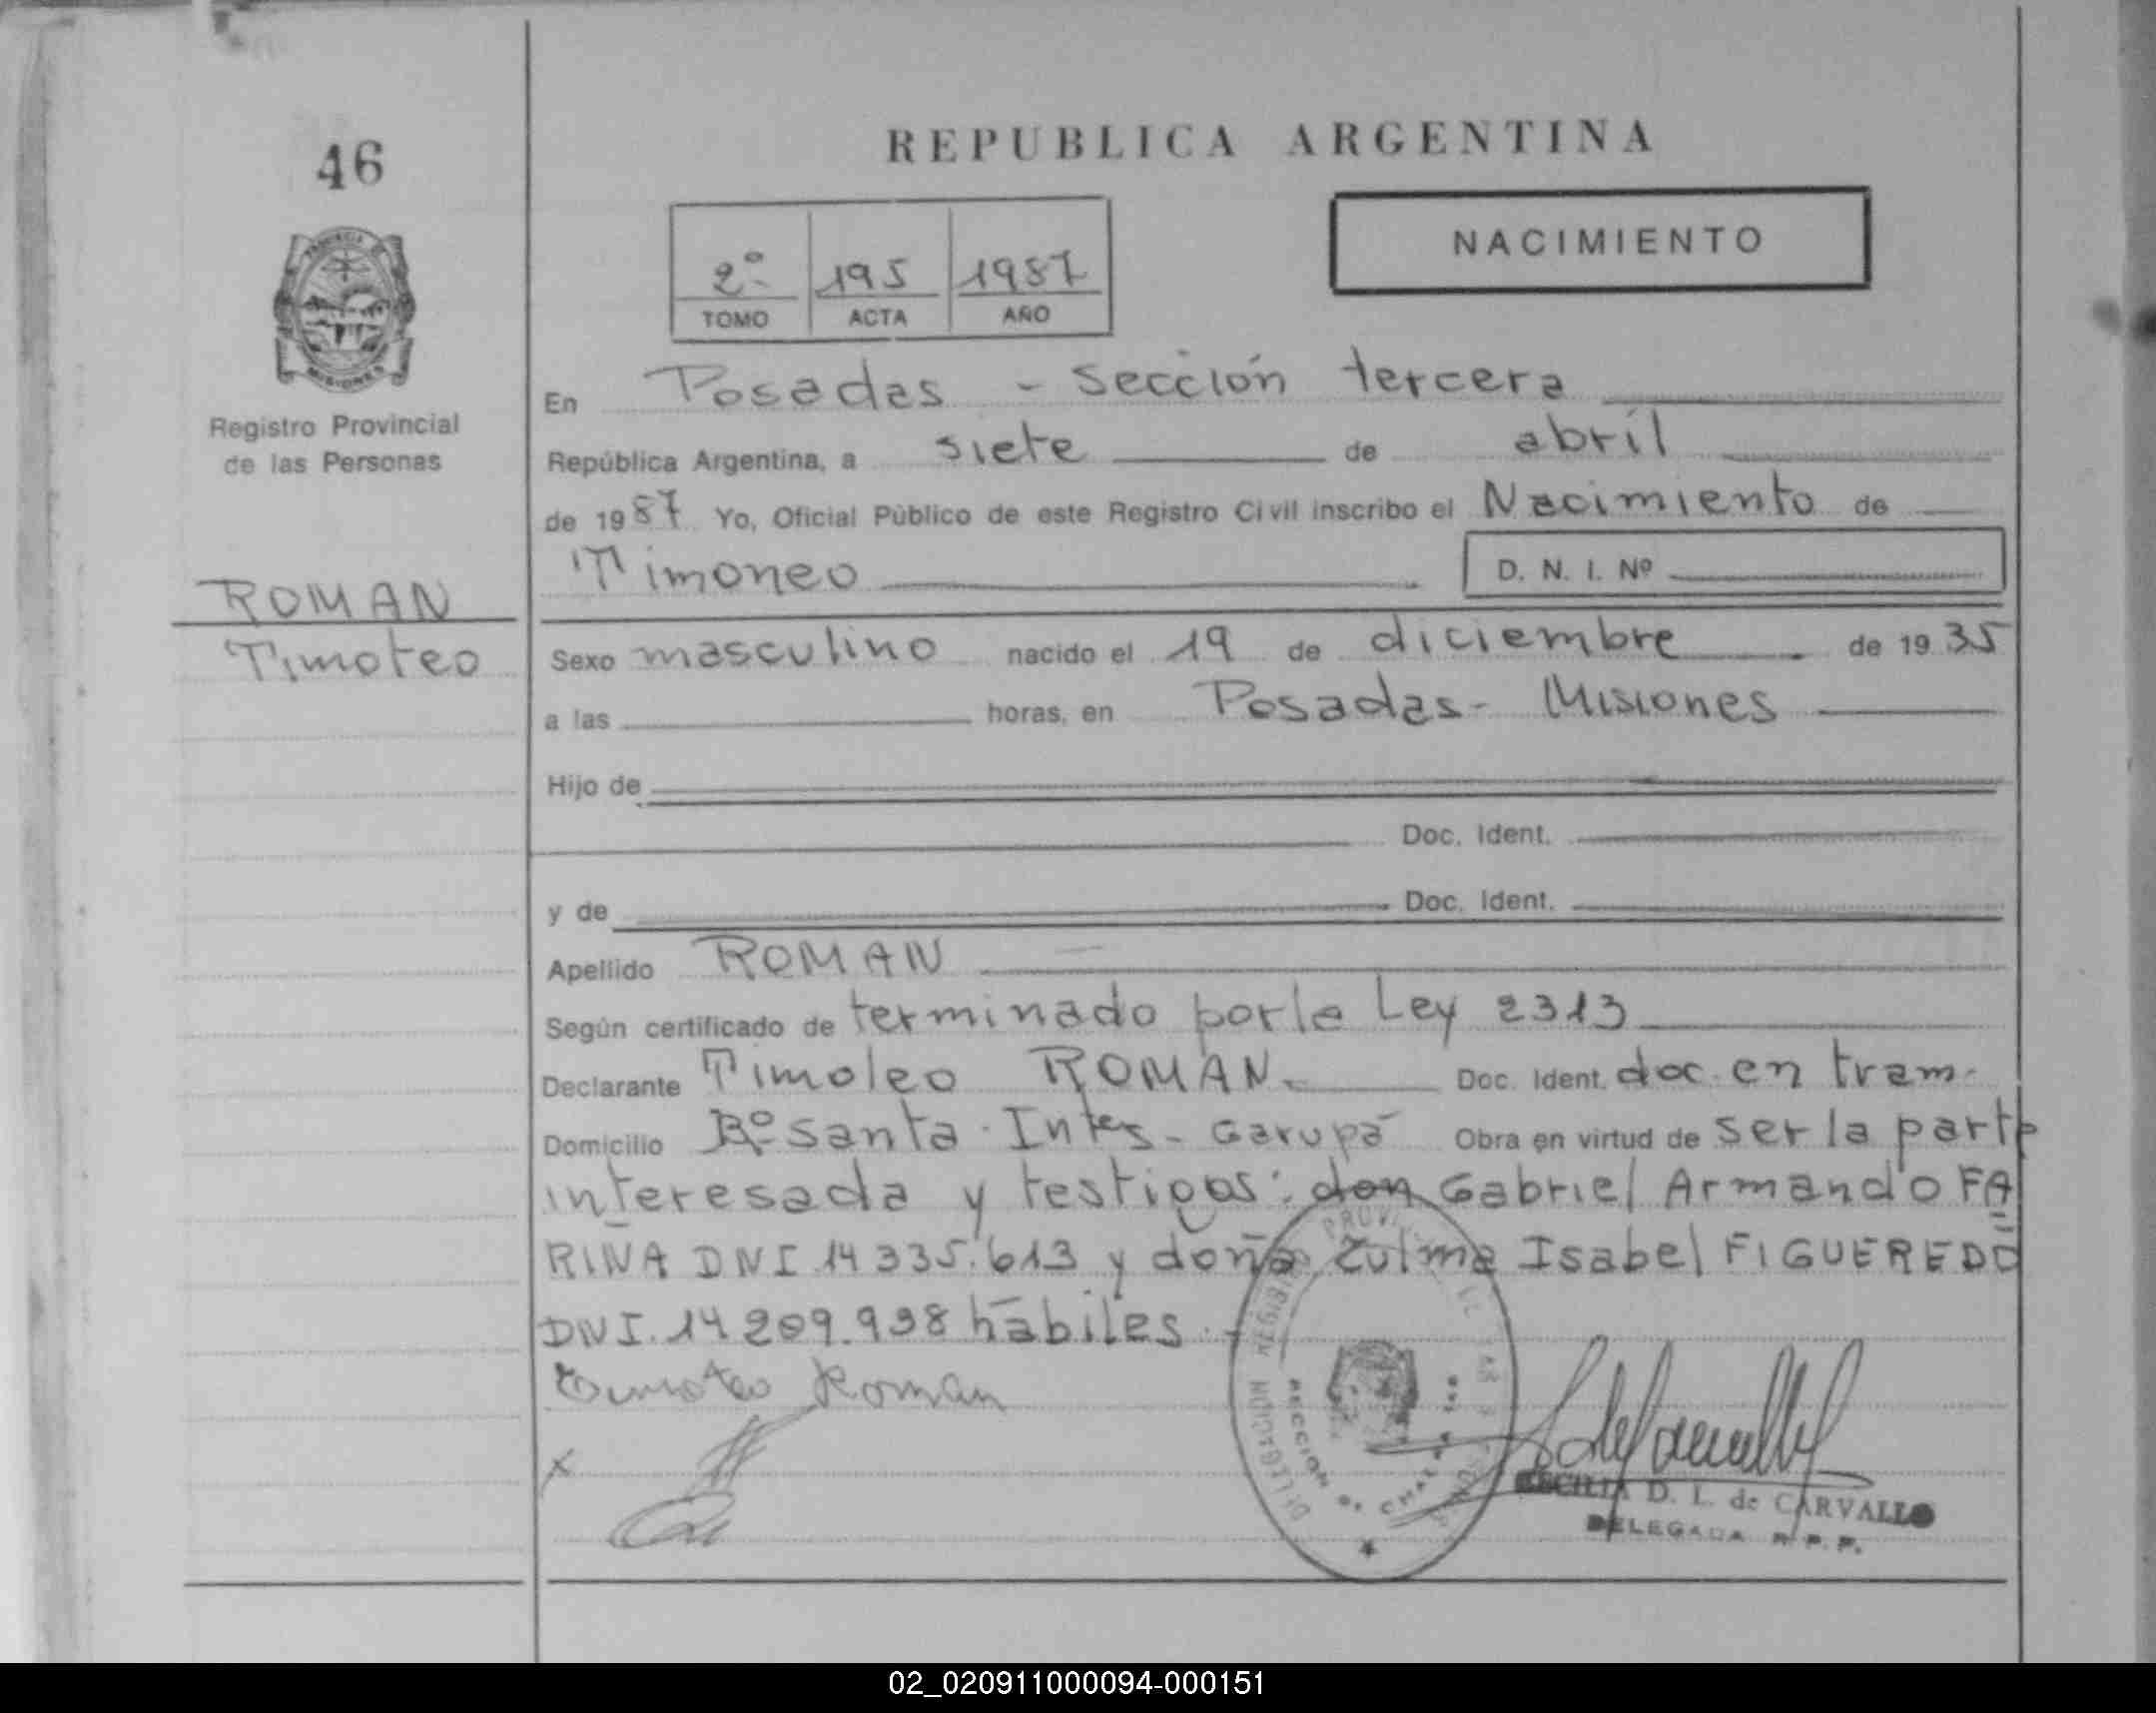 46
REPUBLICA ARGENTINA
NACIMIENTO
2º 195 1987
TOMO ACTA AÑO
PROVINCIA DE
MISIONES
Registro Provincial
de las Personas
ROMAN
Timoteo
En Posadas - Sección tercera
República Argentina, a siete de abril
de 1987 Yo, Oficial Público de este Registro Civil inscribo el Nacimiento de
Timoneo D. N. I. Nº
Sexo masculino nacido el 19 de diciembre de 1935
a las horas, en Posadas - Misiones
Hijo de
Doc. Ident.
y de Doc. Ident.
Apellido ROMAN
Según certificado de terminado por la Ley 2313
Declarante Timoleo ROMAN. Doc. Ident. doc. en tram.
Domicilio Bº Santa Intes - Garupá Obra en virtud de ser la parte
interesada y testigos: don Gabriel Armando FA
RINA DNI 14335.613 y doña Zulma Isabel FIGUEREDO
DNI. 14209.938 hábiles.
Timoteo Roman
x
CECILIA D. L. de CARVALLO
DELEGADA R. P. P.
02_020911000094-000151